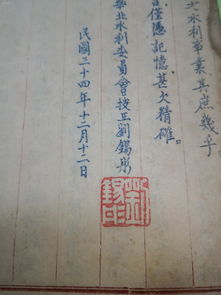 北水利事業其庶幾乎
僅憑記憶甚欠精確。
華北水利委員會技正劉錫彤
民國三十四年十二月十二日
劉錫彤